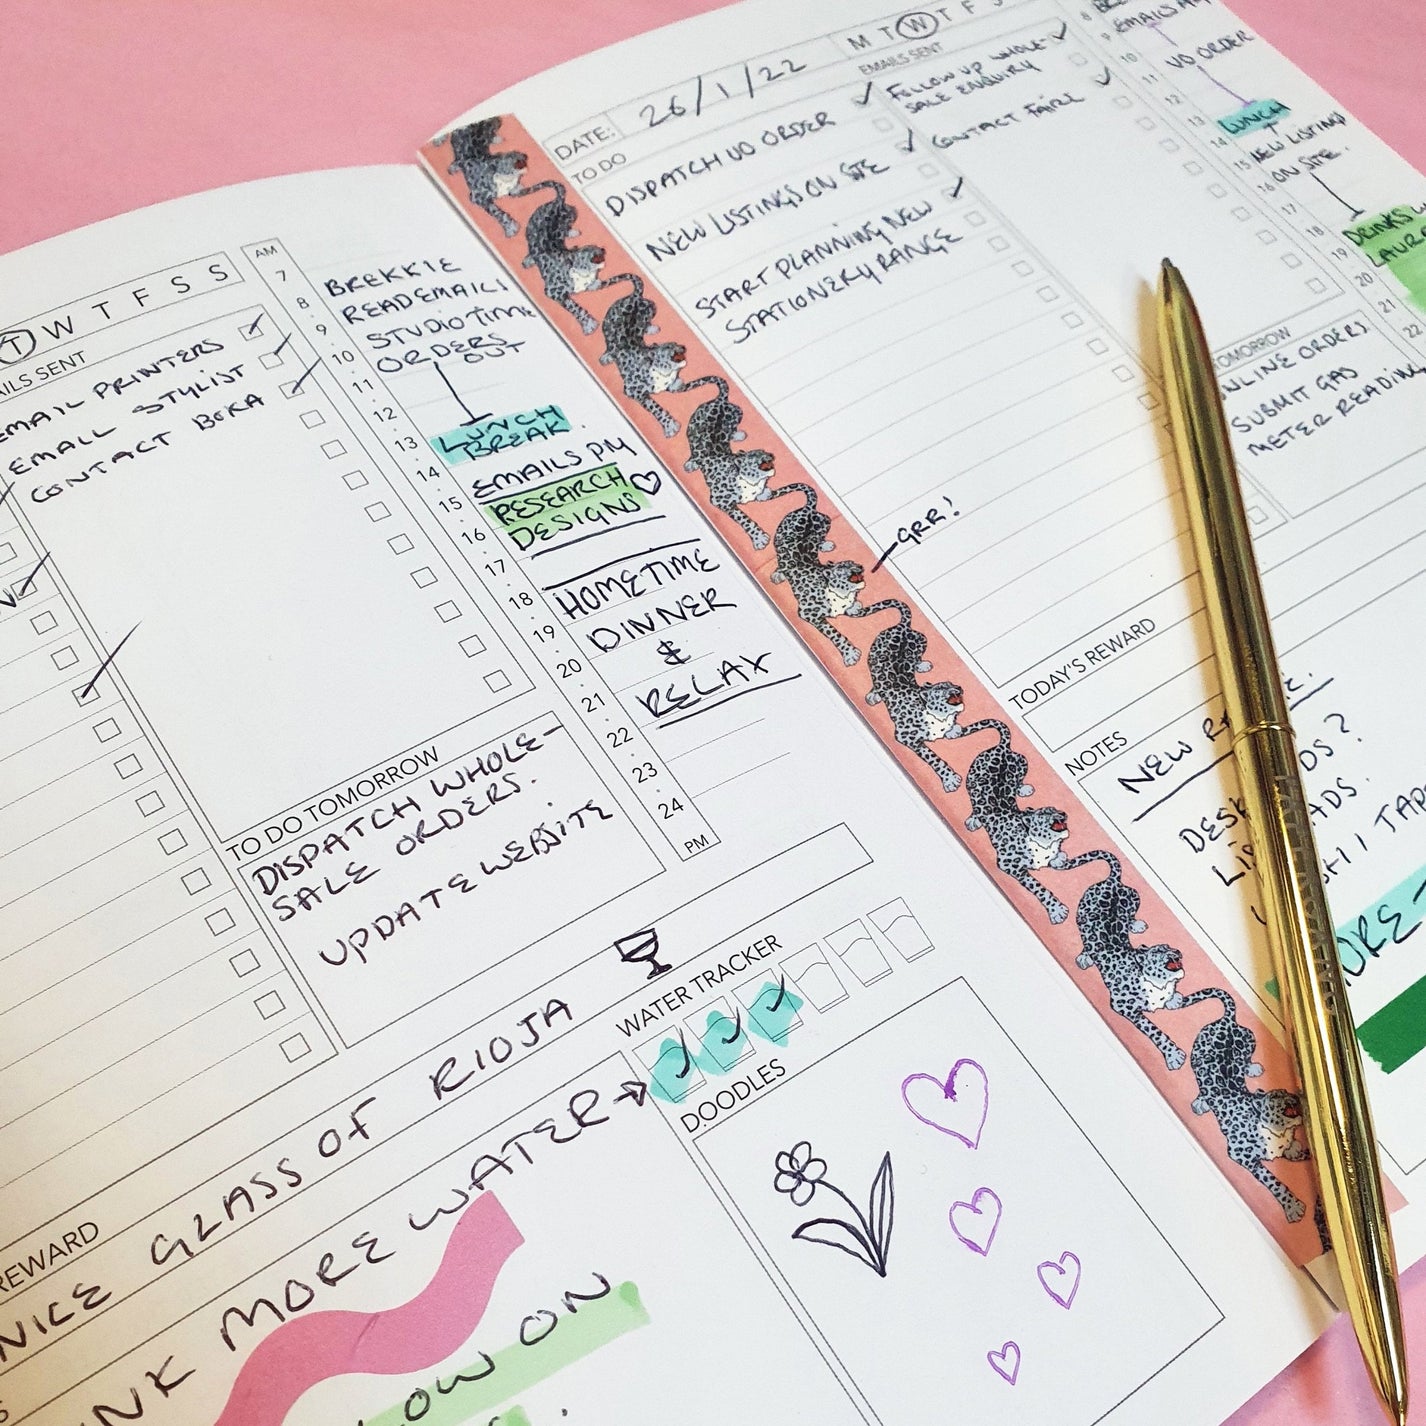 T W T F S S
AILS SENT
EMAIL PRINTERS
EMAIL STYLIST
CONTACT BOKA
AM
7
8
9
10
11
12
13
14
15
16
17
18
19
20
21
22
23
24
PM
BREKKIE
READ EMAILS
STUDIO TIME
ORDERS
OUT
LUNCH
BREAK
EMAILS PM
RESEARCH
DESIGNS
HOMETIME
DINNER
&
RELAX
TO DO TOMORROW
DISPATCH WHOLE-
SALE ORDERS.
UPDATE WEBSITE
REWARD
NICE GLASS OF RIOJA
WATER TRACKER
NK MORE WATER
LOW ON
DOODLES
DATE:
26/1/22
M T W T F S
TO DO
DISPATCH UO ORDER
NEW LISTINGS ON SITE
START PLANNING NEW
STATIONERY RANGE
EMAILS SENT
FOLLOW UP WHOLE-
SALE ENQUIRY
CONTACT FAIRE
8
9
10
11
12
13
14
15
16
17
18
19
20
21
22
EMAILS AM
UO ORDER
LUNCH
NEW LISTING
ON SITE.
DRINKS W
LAURE
TOMORROW
ONLINE ORDERS
SUBMIT GAS
METER READING
GRR!
TODAY'S REWARD
NOTES
NEW
DS?
ADS.
SHI TAPE
ORE